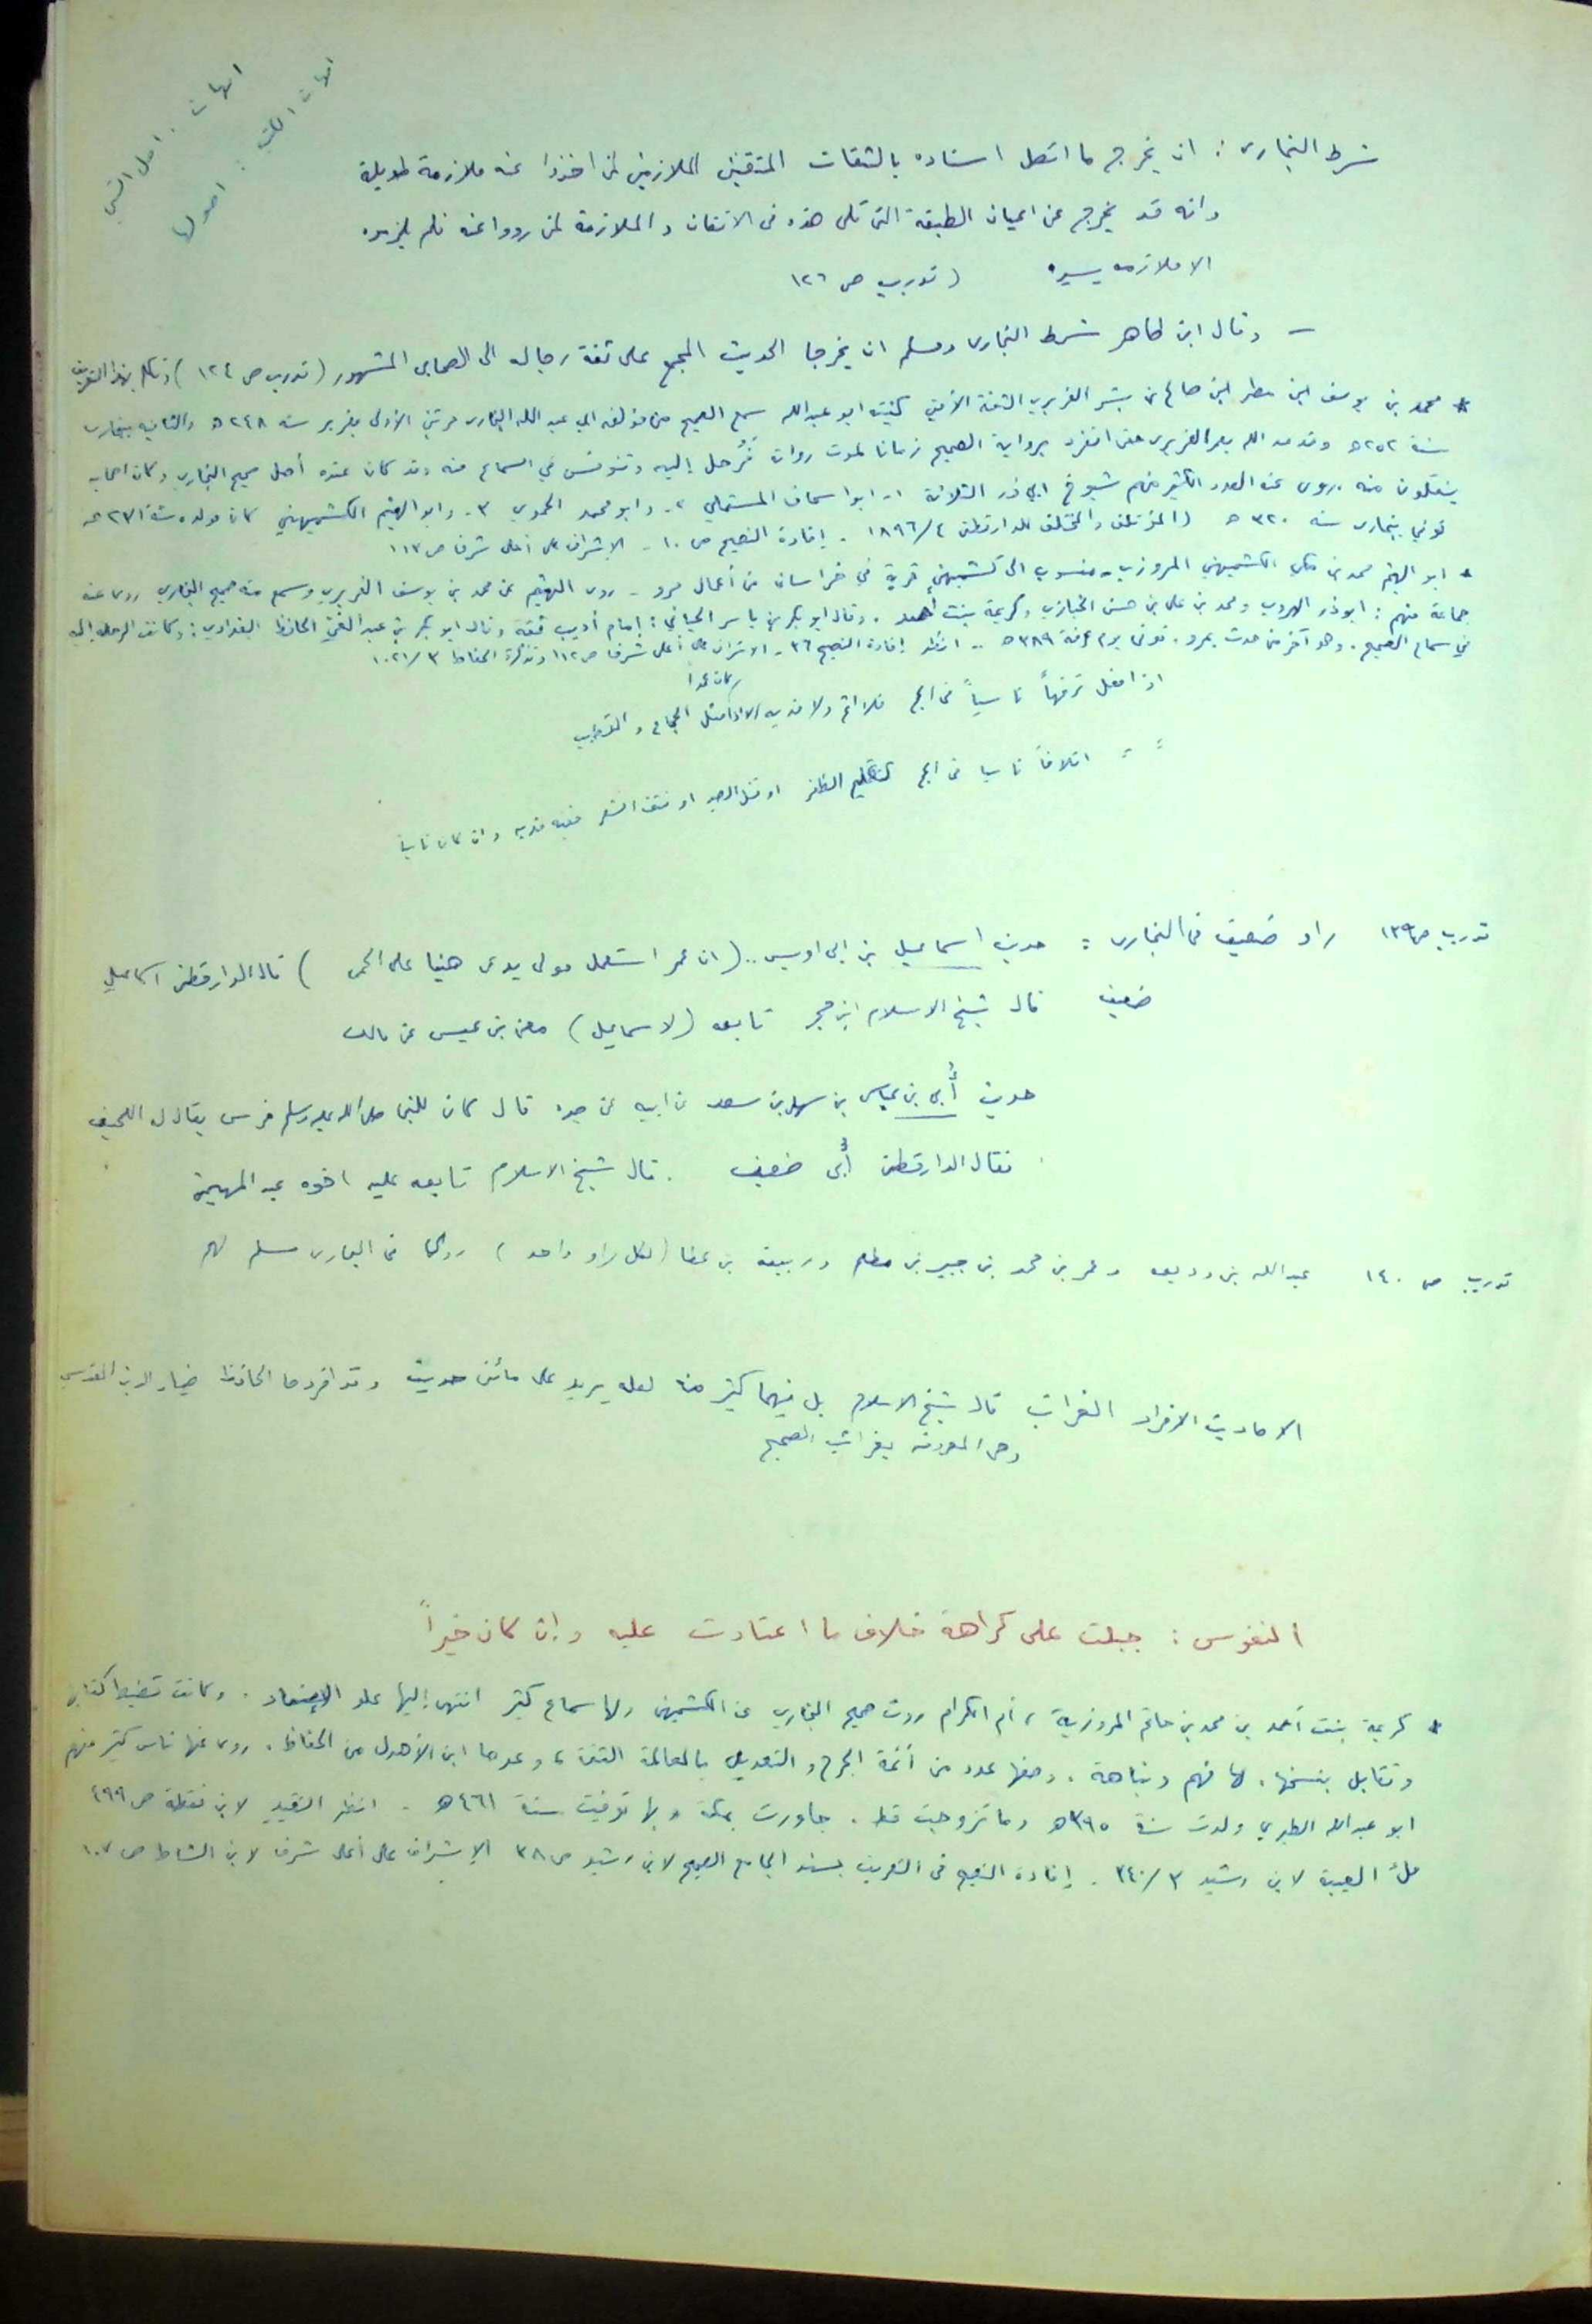 امهات . اهل السنن
امهات الكتب : اصولها
شرط البخارى : ان يخرج ما اتصل اسناده بالثقات المتقنين الملازمين لمن اخذوا عنه ملازمة طويلة
وانه قد يخرج عن اعيان الطبقة التى تلى هذه فى الاتقان و الملازمة لمن رووا عنه فلم يلزموه
الا ملازمه يسيره ( تدريب ص ١٢٦
— وقال ابن طاهر شرط البخارى ومسلم ان يخرجا الحديث المجمع على ثقة رجاله الى الصحابى المشهور ( تدريب ص ١٢٤ )
* محمد بن يوسف ابن مطر ابن صالح بن بشر الفربري الثقة الأمين كنيته ابو عبدالله سمع الصحيح من مؤلفه ابي عبد الله البخارى مرتين الأولى بفربر سنه ٢٤٨ ه والثانيه ببخارى
سنة ٢٥٢ ه وقد مد الله بعمر الفربرى حتى انفرد برواية الصحيح زمانا لموت رواته فرُحل إليه وتنوفس في السماع منه وقد كان عنده أصل صحيح البخاري وكان اصحابه
ينقلون منه . روى عنه العدد الكثير منهم شيوخ ابي ذر الثلاثة ١- ابو اسحاق المستملي ٢- وابو محمد الحموي ٣- وابو الهيثم الكشميهني كان مولده سنة ٢٣١ ه
توفي ببخارى سنه ٣٢٠ ه ( المؤتلف والمختلف للدارقطنى ٤/١٨٩٦ . إفادة النصيح ص ١٠ - الاشراف على أعلى شرف ص ١١٣
* ابو الهيثم محمد بن مكى الكشميهني المروزي - منسوب الى كشميهن قرية في خراسان من أعمال مرو - روى الهيثم عن محمد بن يوسف الفربري وسمع منه صحيح البخاري روى عنه
جماعة منهم : ابوذر الهروي ومحمد بن على بن حسن الخبازي وكريمة بنت أحمد . وقال ابو بكر بن ياسر الجياني : إمام أديب ثقة وقال ابو بكر بن عبد الغنى الحافظ البغدادي : وكانت الرحله إليه
في سماع الصحيح . وهو آخر من حدث بمرو . توفى يوم عرفة ٣٨٩ ه .. انظر إفادة النصيح ٣٦ - الاشراف على أعلى شرف ص ١١٢ وتذكرة الحفاظ ٣/١٠٢١
اذا فعل ترفهاً ناسياً فى الحج فلا اثم ولا فديه الا اذا كان عمدا مثل الجماع و التطيب
" " اتلافاً ناسيا فى الحج كتقليم الظفر او قتل الصيد او نتف الشعر ففيه فديه وان كان ناسياً
تدريب ص ١٣٩ راو ضعيف فى البخارى : حديث اسماعيل بن ابى اويس .. ( ان عمر استعمل مولى يدعى هنيا على الحمى ) قال الدارقطنى اسماعيل
ضعيف قال شيخ الاسلام ابن حجر تابعه ( لاسماعيل ) معن بن عيسى عن مالك
حديث أُبى بن عباس بن سهل بن سعد عن ابيه عن جده قال كان للنبى صلى الله عليه وسلم فرس يقال له اللحيف
فقال الدارقطنى أُبى ضعيف . قال شيخ الاسلام تابعه عليه اخوه عبد المهيمن
تدريب ص ١٤٠ عبد الله بن وديعه وعمر بن محمد بن جبير بن مطعم وربيعة بن عطا ( لكل راو واحد ) روى فى البخارى مسلم لهم
الاحاديث الافراد الغرائب قال شيخ الاسلام بل فيهما كثير منه لعله يزيد على مائتى حديث وقد افردها الحافظ ضياء الدين المقدسي
وهى المعروفه بغرائب الصحيح
النفوس : جبلت على كراهة خلاف ما اعتادت عليه وإن كان خيراً
* كريمة بنت أحمد بن محمد بن حاتم المروزية ، أم الكرام روت صحيح البخاري عن الكشميهنى ولها سماع كثير انتهى إليها علو الإسناد . وكانت تضبط كتابها
وتقابل بنسخها . لها فهم ونباهة . وصفها عدد من أئمة الجرح و التعديل بالعالمة الثقة ، وعدها ابن الأهدل من الحفاظ . روى عنها ناس كثير منهم
ابو عبدالله الطبري ولدت سنة ٣٩٥ ه وما تزوجت قط . جاورت بمكة وبها توفيت سنة ٤٦١ ه . انظر التقييد لابن نقطة ص ٤٩٩
ملء العيبة لابن رشيد ٣/٣٤٠ . إفادة النصيح فى التعريف بسند الجامع الصحيح لابن رشيد ص ٣٨ الإشراف على أعلى شرف لابن الشاط ص ١٠٧